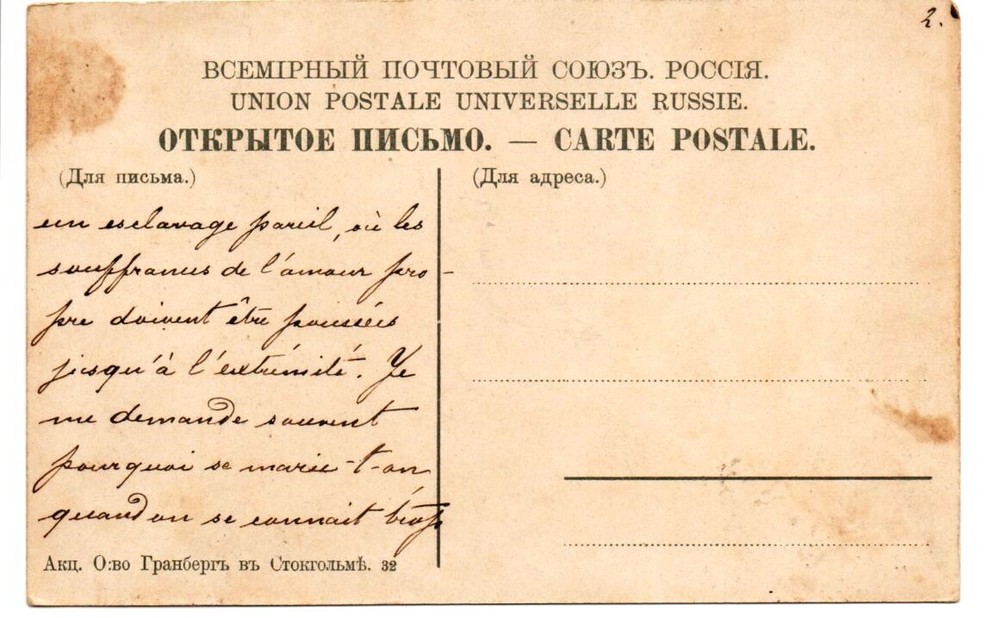 2.
ВСЕМІРНЫЙ ПОЧТОВЫЙ СОЮЗЪ. РОССІЯ.
UNION POSTALE UNIVERSELLE RUSSIE.
ОТКРЫТОЕ ПИСЬМО. — CARTE POSTALE.
(Для письма.)
(Для адреса.)
un esclavage pareil, où les
souffrances de l'amour pro-
pre doivent être poussées
jusqu'à l'extrémité. Je
me demande souvent
pourquoi se marie-t-on
quand on se connait
Акц. О:во Гранбергъ въ Стокгольмѣ. 32